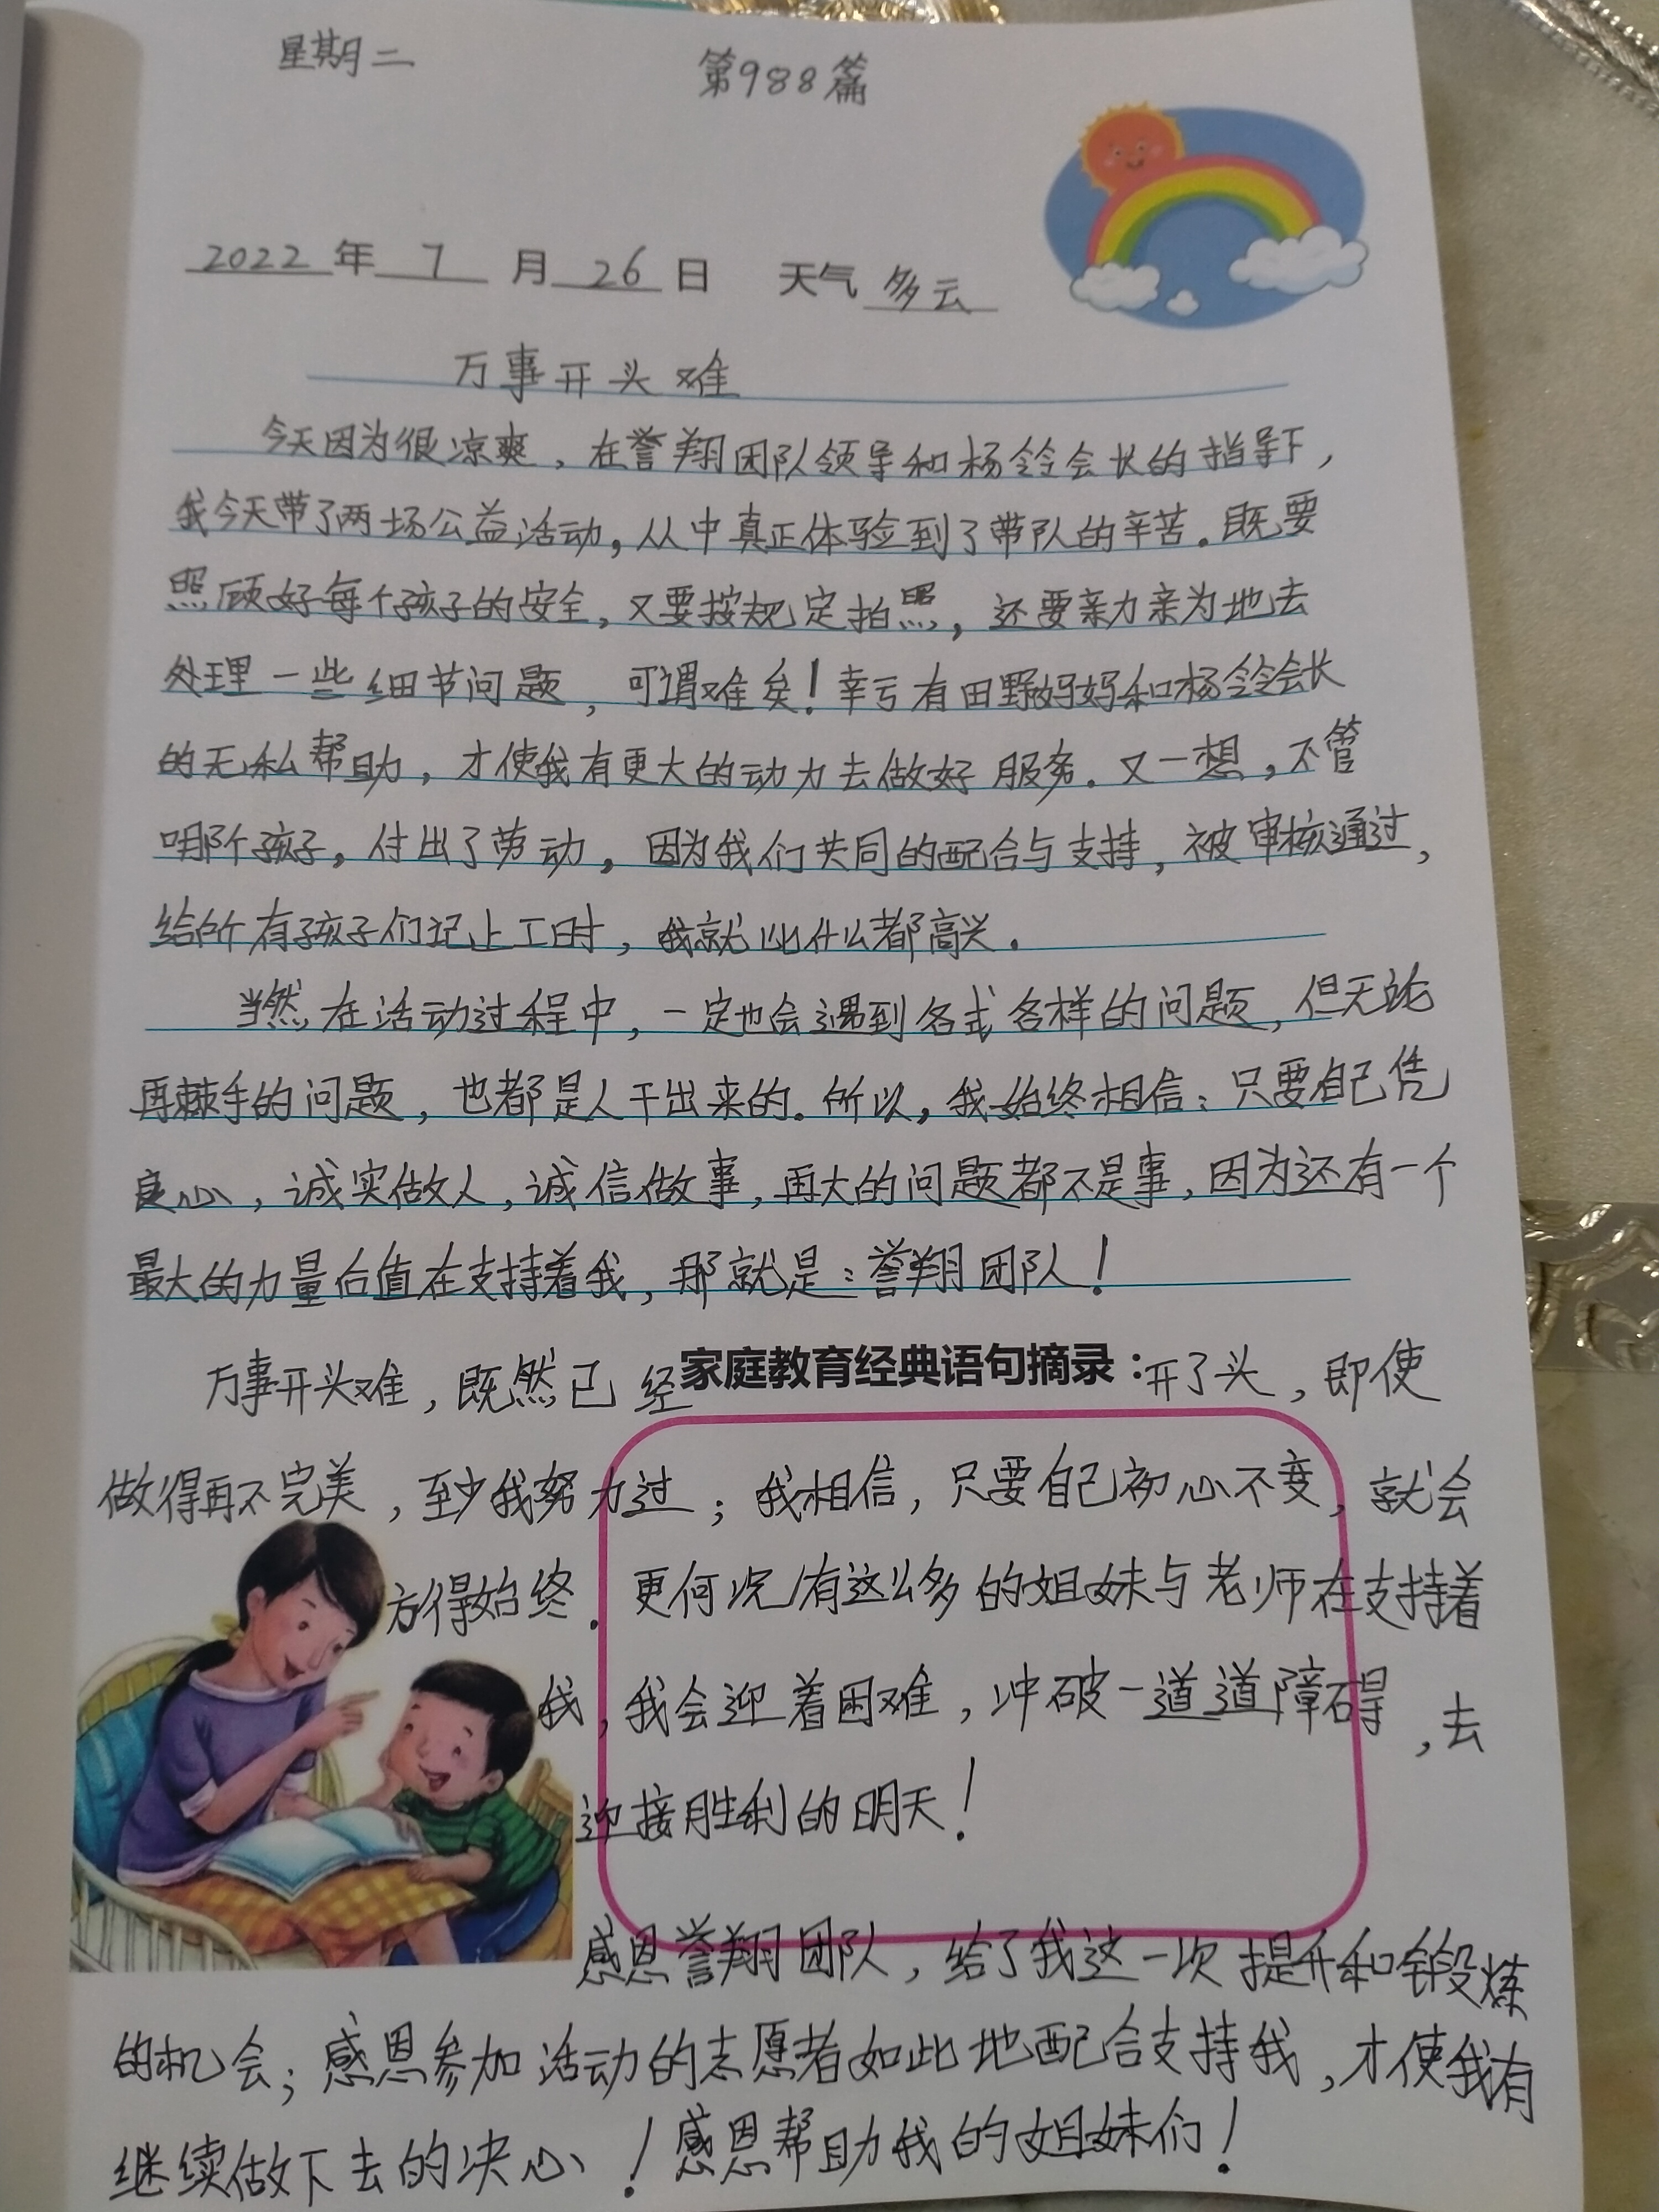 星期二 第988篇
2022年7月26日 天气多云
万事开头难
今天因为很凉爽，在誉翔团队领导和杨玲会长的指导下，
我今天带了两场公益活动，从中真正体验到了带队的辛苦。既要
照顾好每个孩子的安全，又要按规定拍照，还要亲力亲为地去
处理一些细节问题，可谓难矣！幸亏有田野妈妈和杨玲会长
的无私帮助，才使我有更大的动力去做好服务。又一想，不管
哪个孩子，付出了劳动，因为我们共同的配合与支持，被审核通过，
给所有孩子们记上工时，我就比什么都高兴。
当然，在活动过程中，一定也会遇到各式各样的问题，但无论
再棘手的问题，也都是人干出来的。所以，我始终相信：只要自己凭
良心，诚实做人，诚信做事，再大的问题都不是事，因为还有一个
最大的力量在支持着我，那就是：誉翔团队！
家庭教育经典语句摘录：
万事开头难，既然已经开了头，即使
做得再不完美，至少我努力过；我相信，只要自己初心不变，就会
方得始终。更何况有这么多的姐妹与老师在支持着
我，我会迎着困难，冲破一道道障碍，去
迎接胜利的明天！
感恩誉翔团队，给了我这一次提升和锻炼
的机会；感恩参加活动的志愿者如此地配合支持我，才使我有
继续做下去的决心！感恩帮助我的姐妹们！